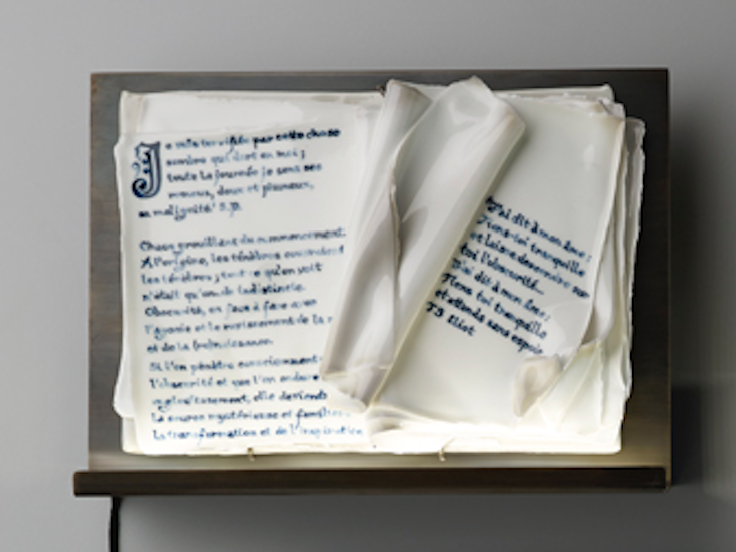 Je suis terrifiée par cette chose
sombre qui dort en moi ;
toute la journée je sens ses
doux et plumeux,
sa malignité. S.P.
Chaos grouillant du commencement.
A l'origine, les ténèbres couvraient
les ténèbres ; tout ce qu'on voit
n'était qu'onde indistincte.
Obscurité, en face à face avec
l'agonie et le de la
et de la
Si l'on pénètre consciemment
l'obscurité et que l'on endure
elle devient
la source mystérieuse et familière
la transformation et de l'inspiration
J'ai dit à mon âme :
Tiens-toi tranquille
et laisse descendre sur
toi l'obscurité...
J'ai dit à mon âme :
Tiens toi tranquille
et attends sans espoir
TS Eliot